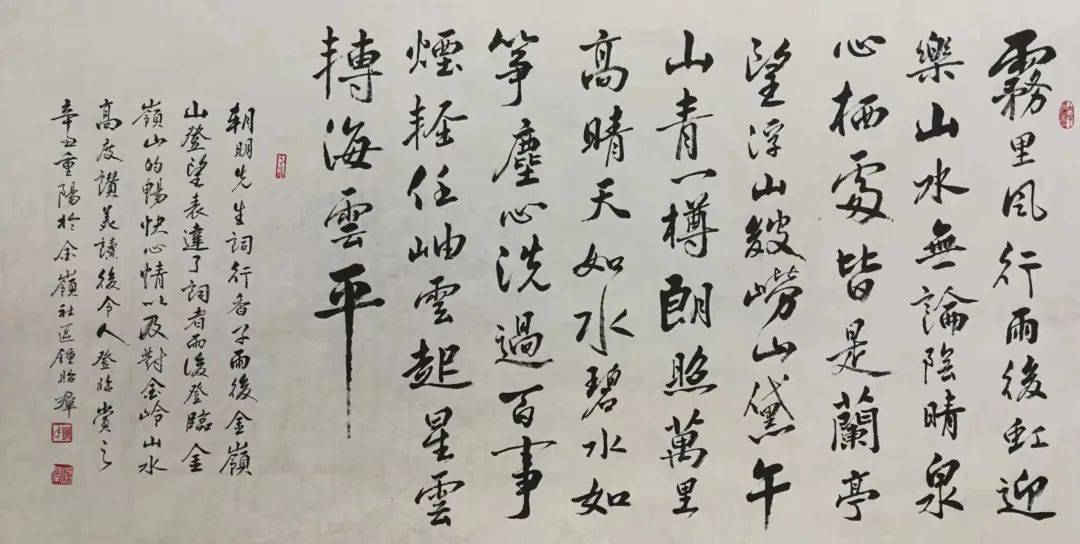 霧里风行雨後虹迎
樂山水無論陰晴泉
心栖處皆是蘭亭
望浮山翠嶗山黛午
山青一樽朗照萬里
高晴天如水碧水如
箏塵心洗過百事
煙輕任岫雲起星雲
轉海雲平
朝明先生詞行香子雨後金嶺
山登望表達了詞者雨後登臨金
嶺山的暢快心情以及對金岭山水
高度讚美讀後令人登臨賞之
辛丑重陽於余嶺社區鍾昭群